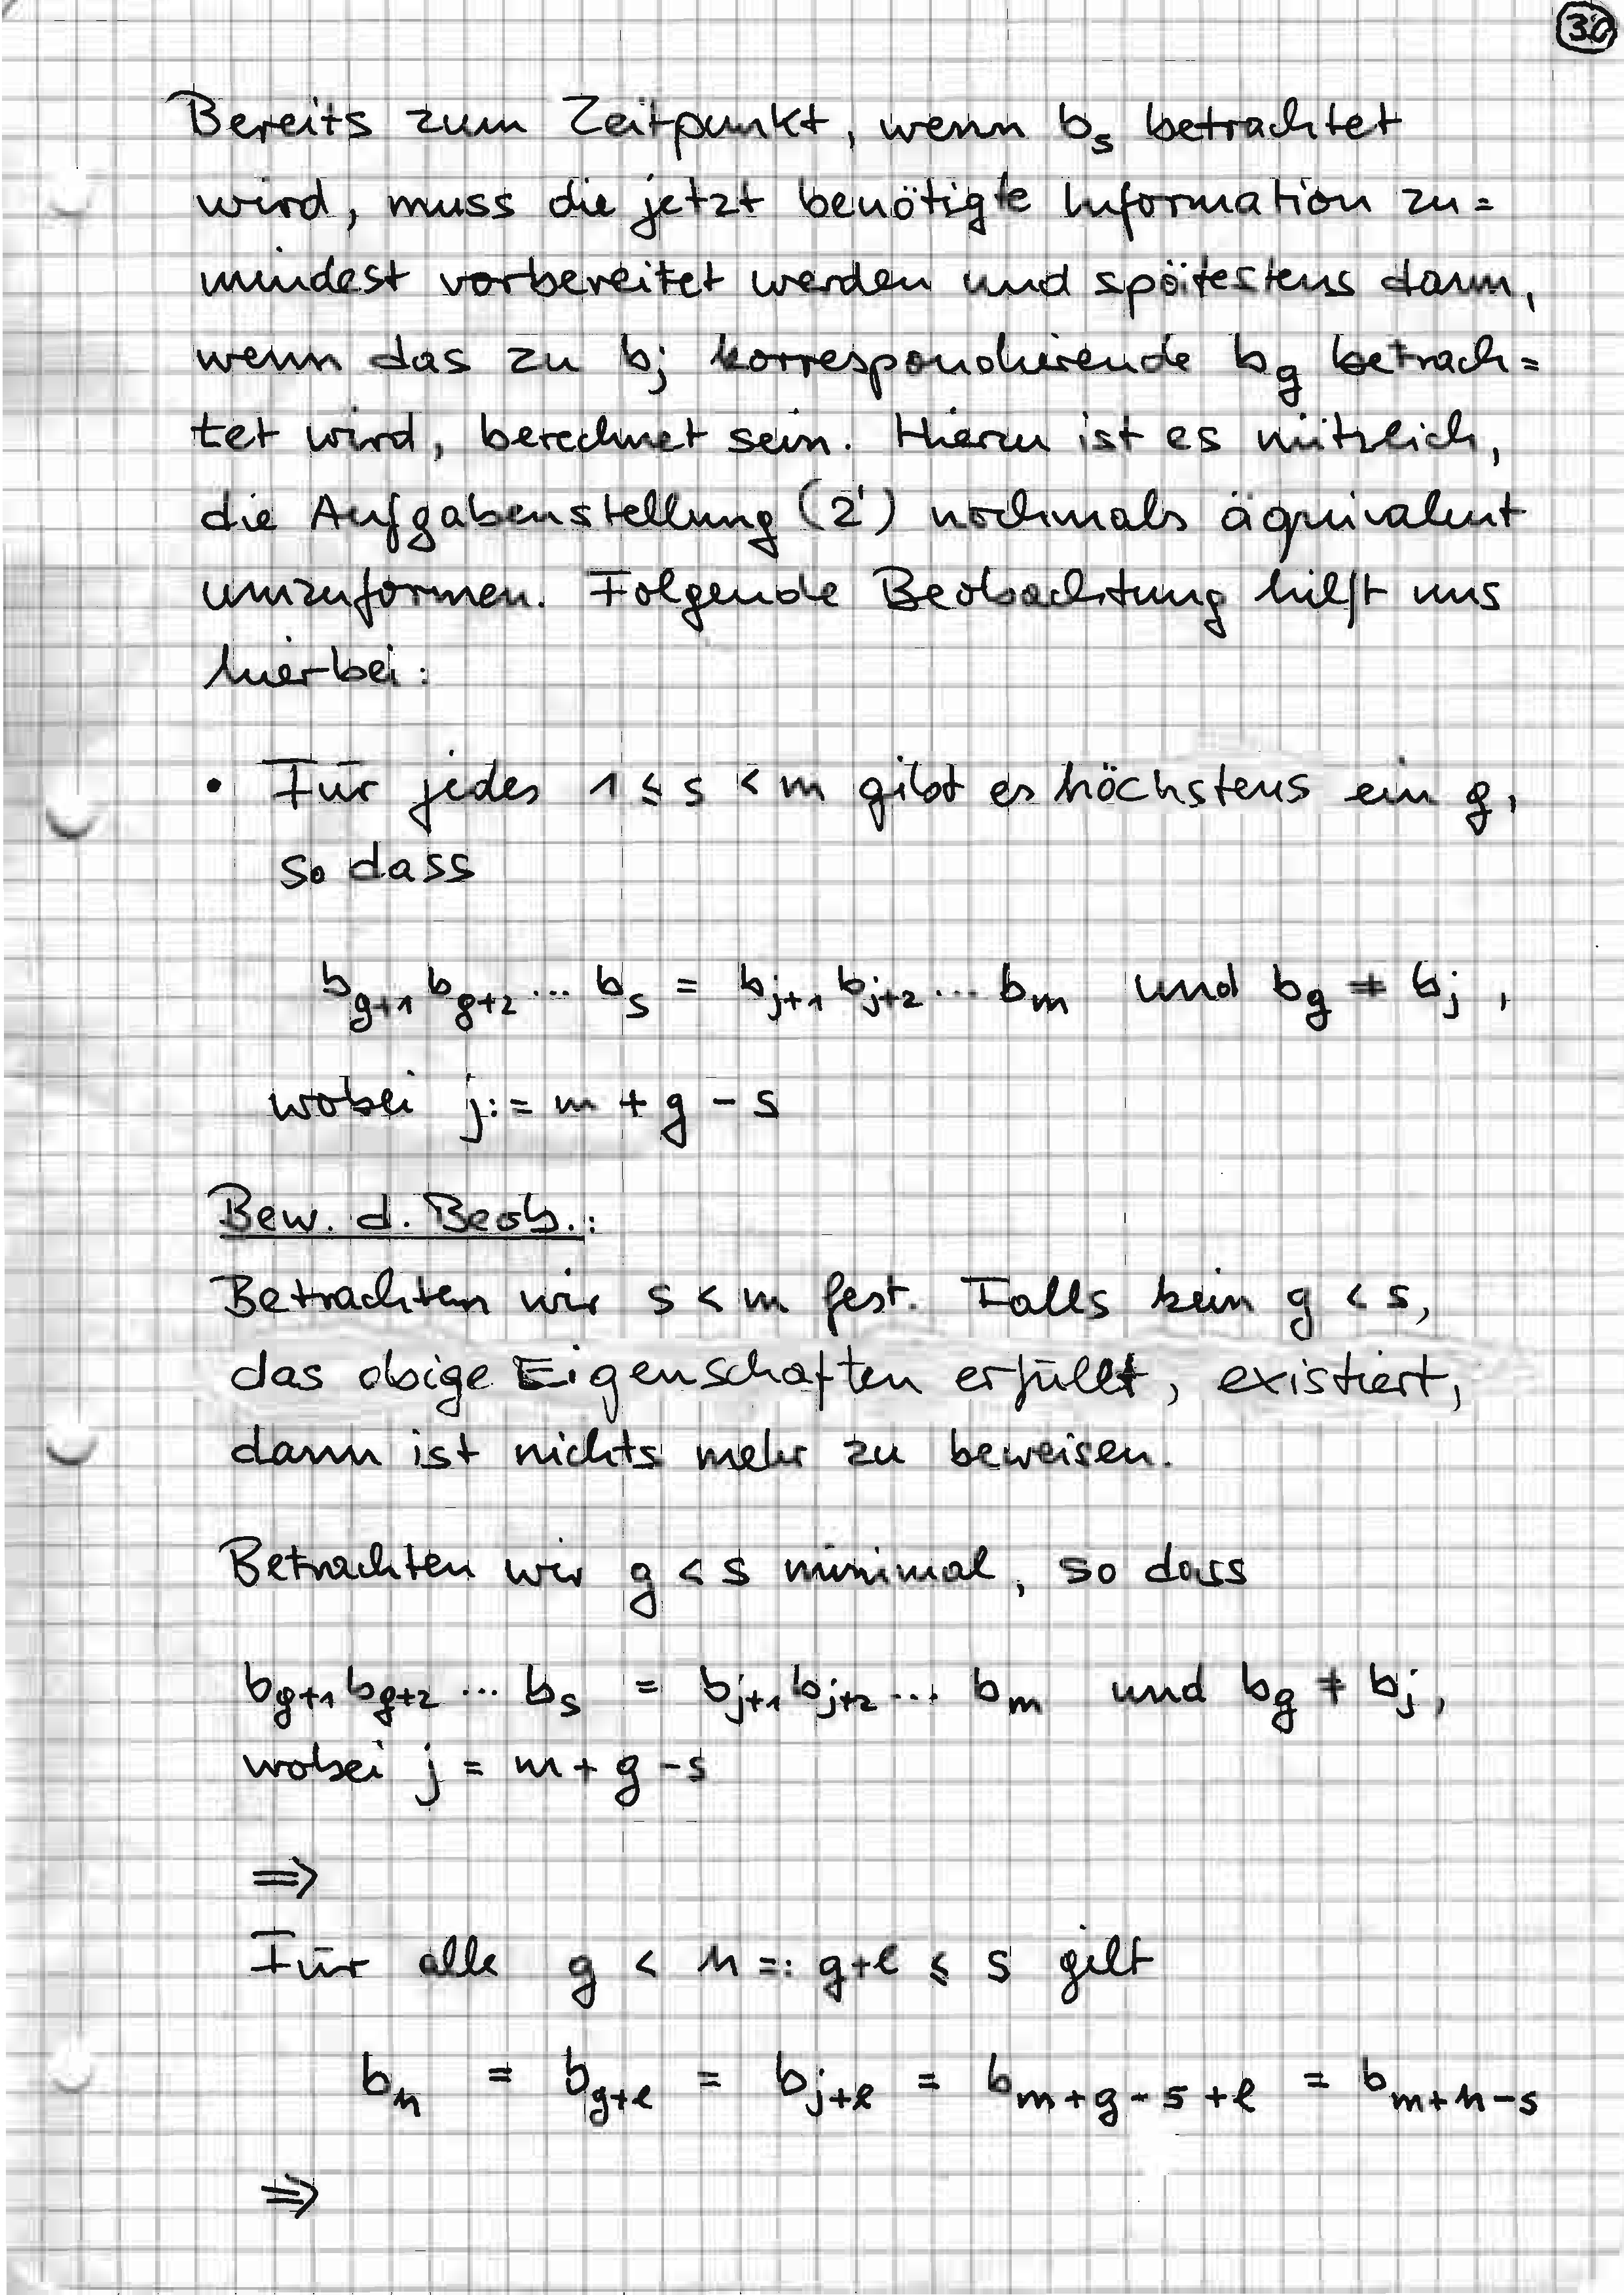 30
Bereits zum Zeitpunkt, wenn b_s betrachtet
wird, muss die jetzt benötigte Information zu=
mindest vorbereitet werden und spätestens dann,
wenn das zu b_j korrespondierende b_g betrach=
tet wird, berechnet sein. Hierzu ist es nützlich,
die Aufgabenstellung (2') nochmals äquivalent
umzuformen. Folgende Beobachtung hilft uns
hierbei:
• Für jedes 1 ≤ s < m gibt es höchstens ein g,
so dass
b_{g+1} b_{g+2} ... b_s = b_{j+1} b_{j+2} ... b_m und b_g ≠ b_j,
wobei j := m + g - s
Bew. d. Beob.:
Betrachten wir s < m fest. Falls kein g < s,
das obige Eigenschaften erfüllt, existiert,
dann ist nichts mehr zu beweisen.
Betrachten wir g < s minimal, so dass
b_{g+1} b_{g+2} ... b_s = b_{j+1} b_{j+2} ... b_m und b_g ≠ b_j,
wobei j = m + g - s
⇒
Für alle g < h =: g+l ≤ s gilt
b_h = b_{g+l} = b_{j+l} = b_{m+g-s+l} = b_{m+h-s}
⇒